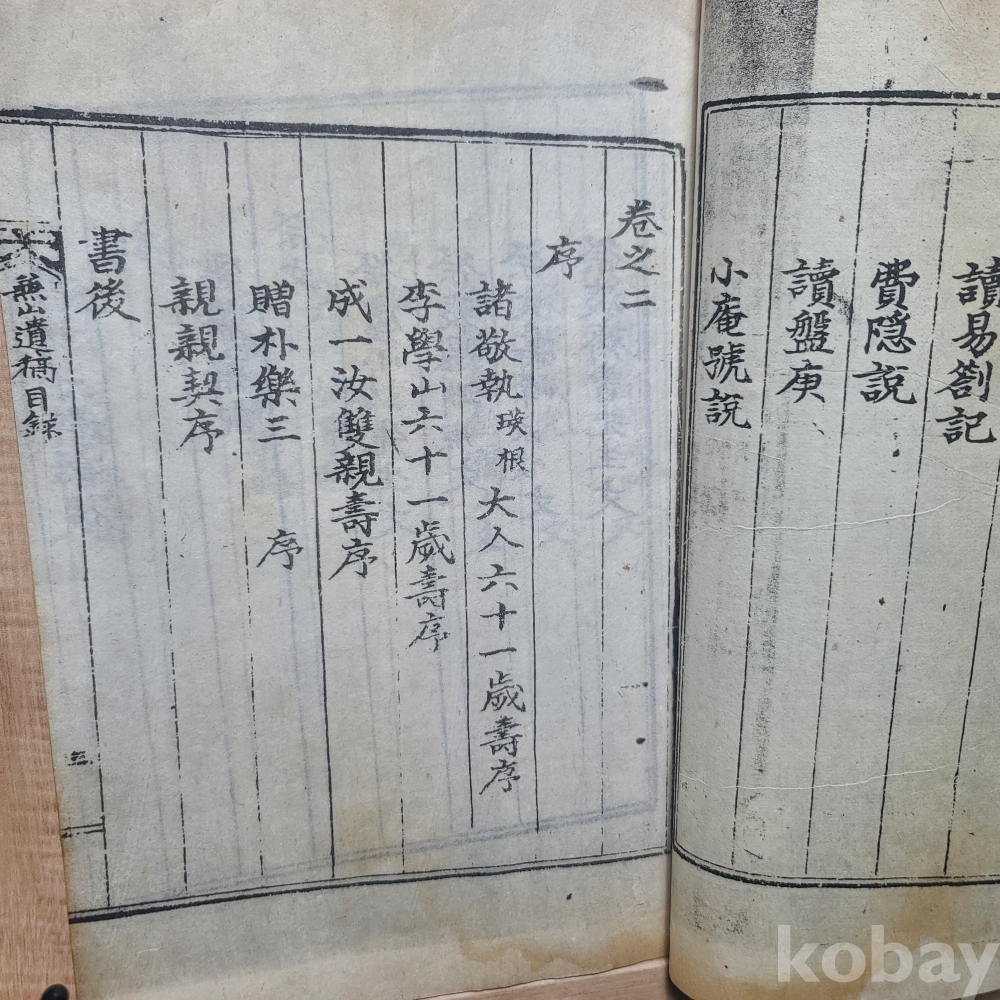 讀易劄記
費隠說
讀盤庚
小庵號說
卷之二
序
諸敬執瑛根大人六十一歲壽序
李學山六十一歲壽序
成一汝雙親壽序
贈朴樂三 序
親親契序
書後
無山遺稿目録
三
kobay